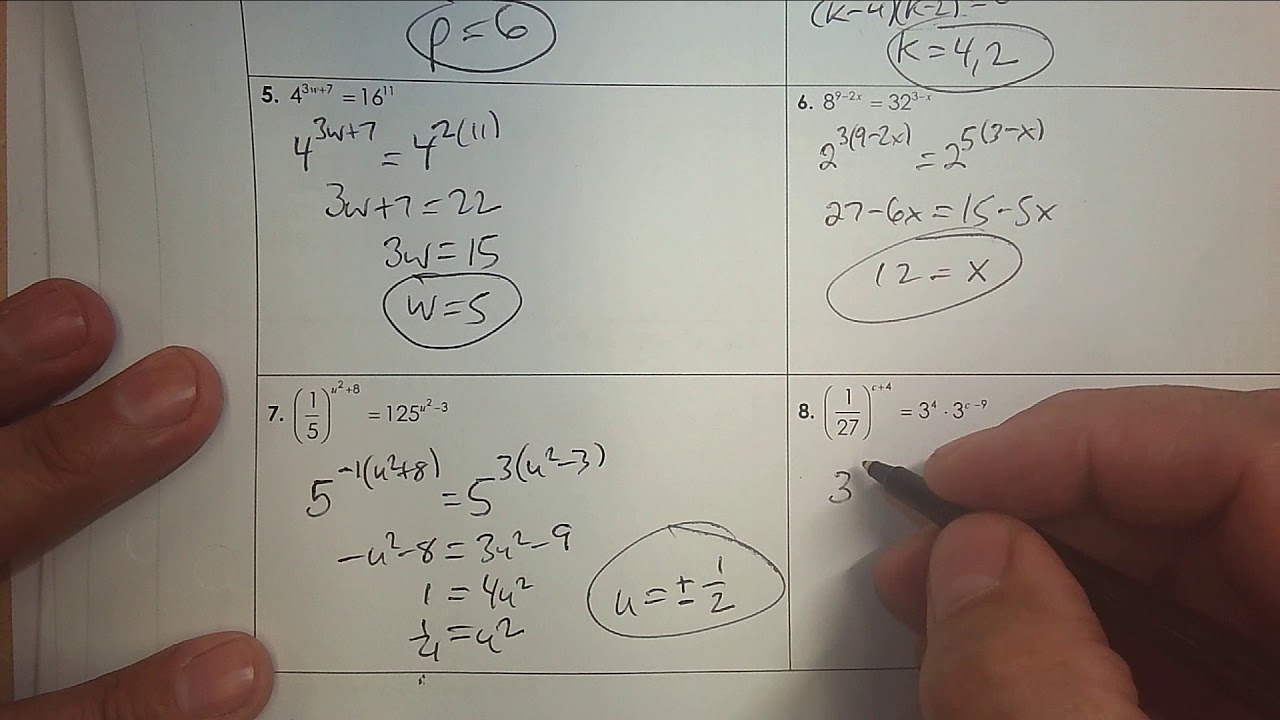 p=6
(k-4)(k-2)=
k=4,2
5. 4^{3w+7} = 16^{11}
4^{3w+7} = 4^{2(11)}
3w+7=22
3w=15
w=5
6. 8^{9-2x} = 32^{3-x}
2^{3(9-2x)} = 2^{5(3-x)}
27-6x=15-5x
12=x
7. (1/5)^{u²+8} = 125^{u²-3}
5^{-1(u²+8)} = 5^{3(u²-3)}
-u²-8=3u²-9
1=4u²
1/4=u²
u=±1/2
8. (1/27)^{c+4} = 3^4 · 3^{c-9}
3